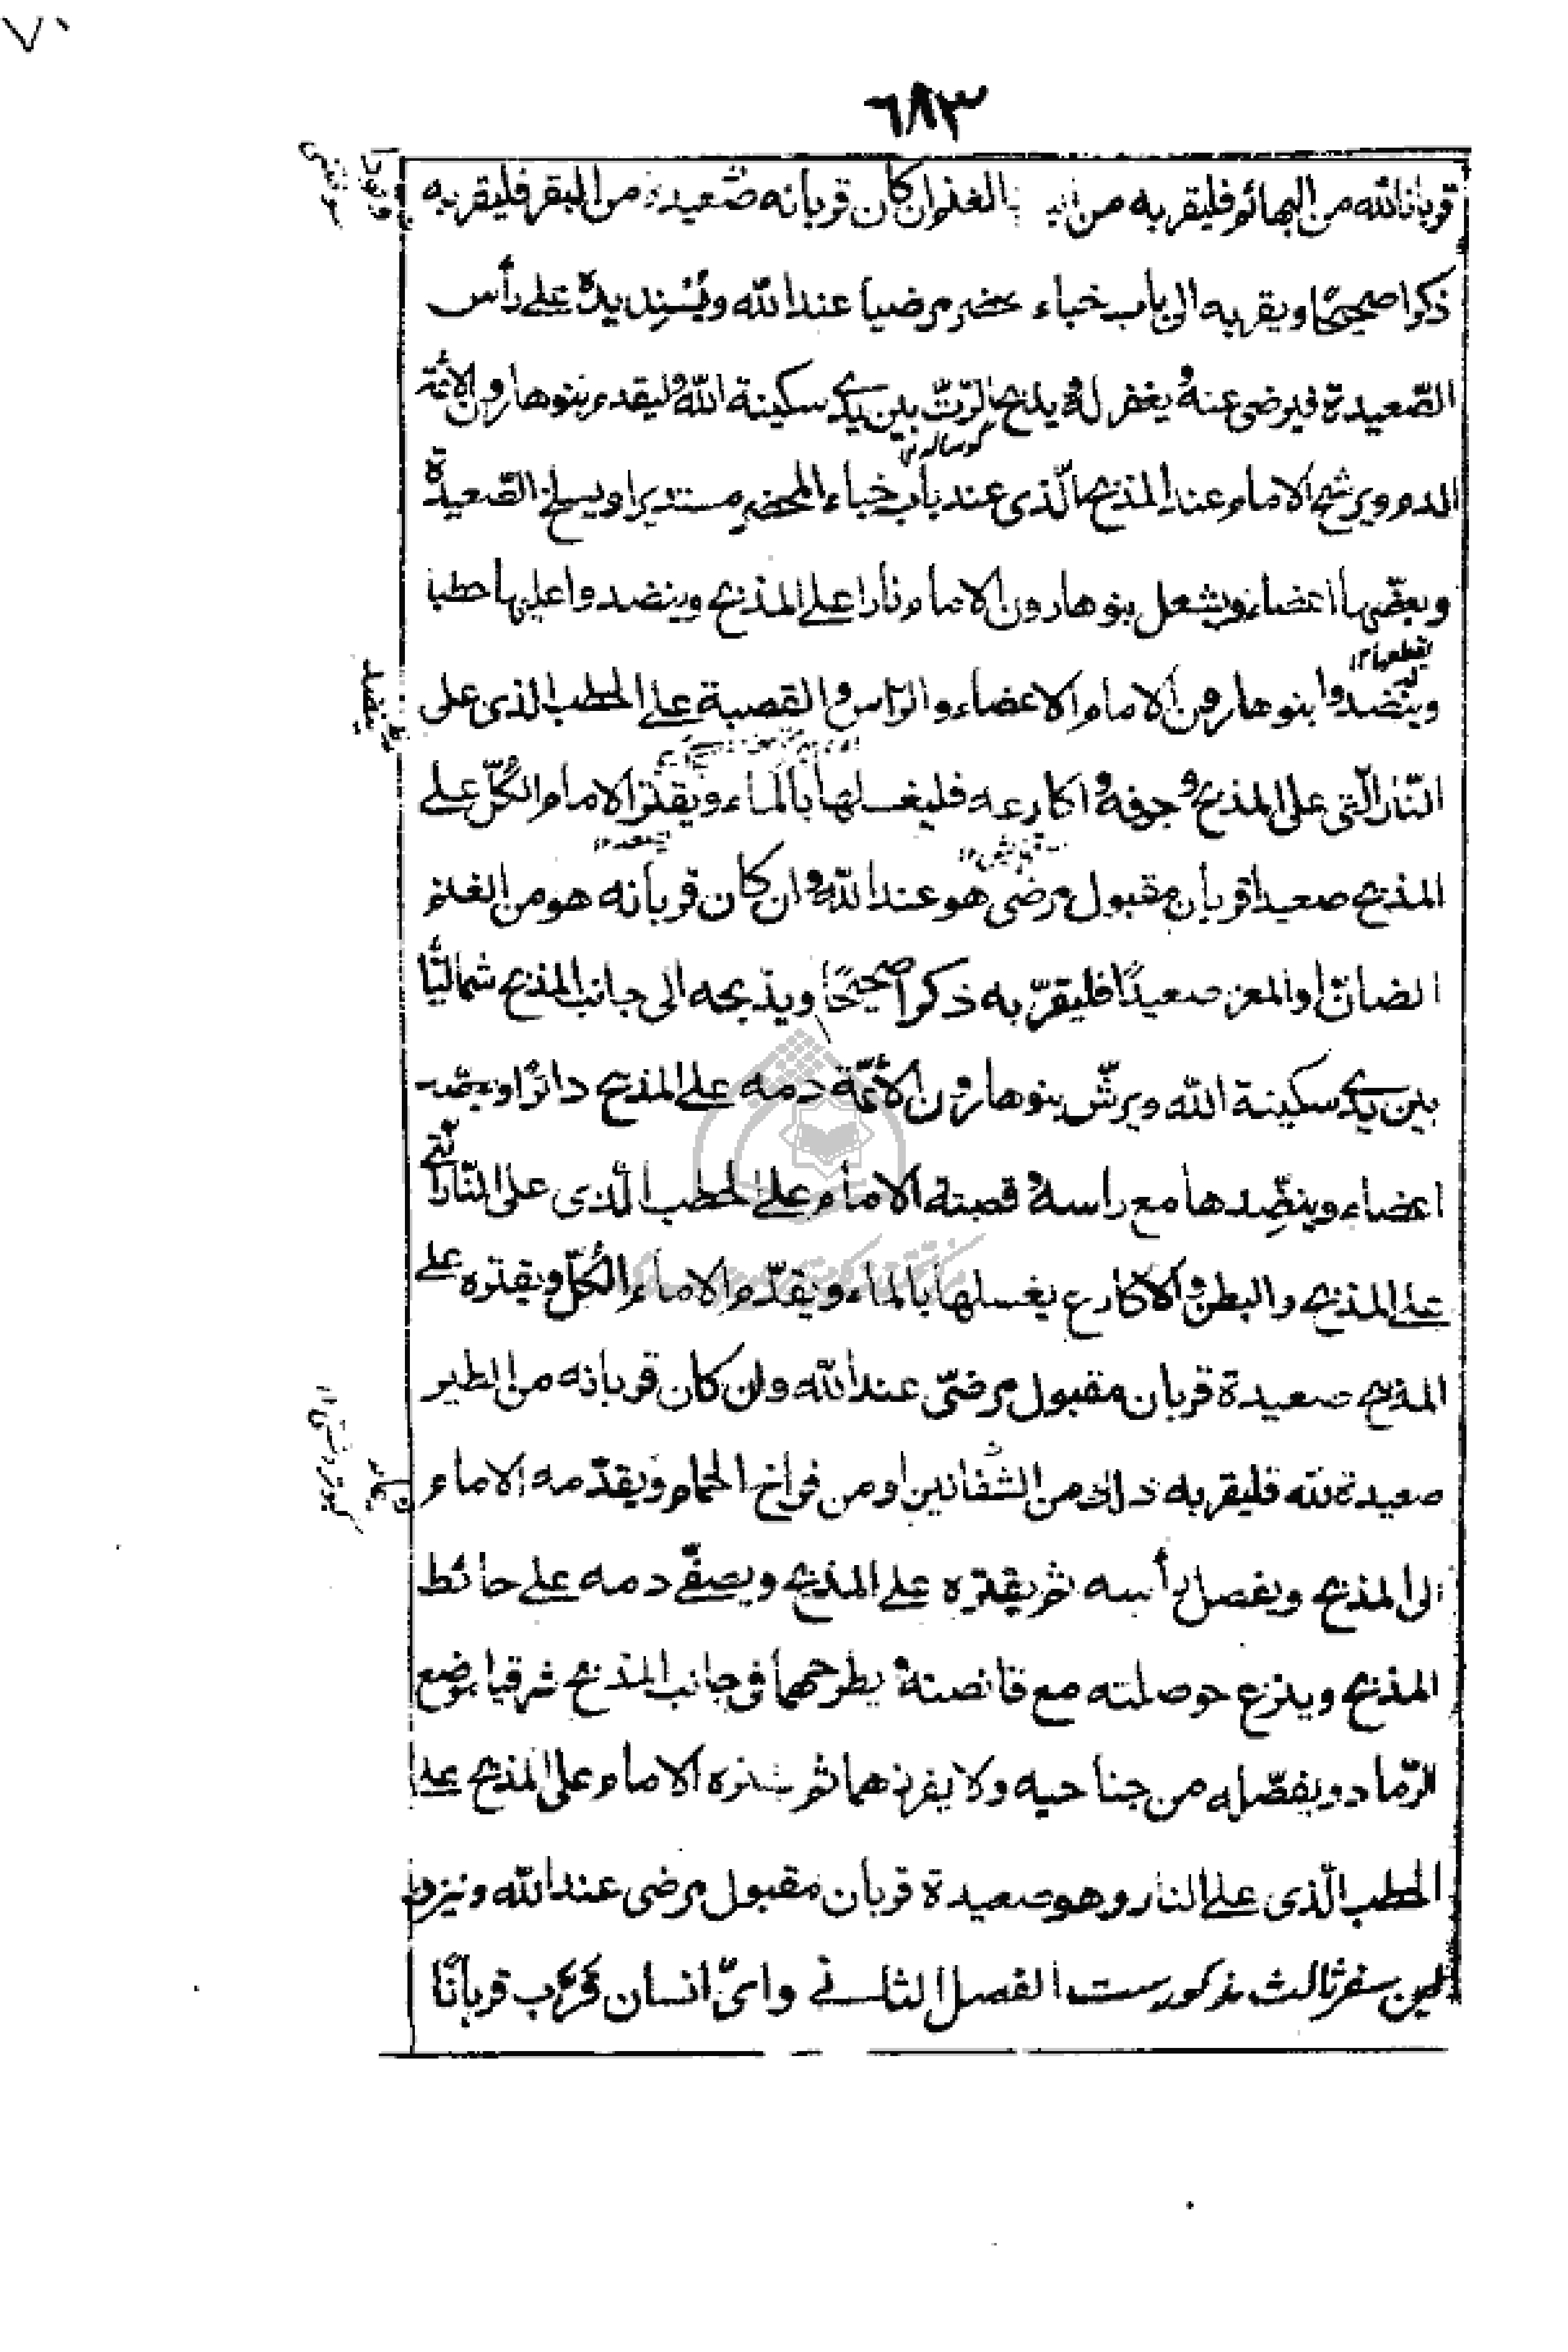 ٦٨٣
قربانا لله من البهائم فليقر به من الغنم وان كان قربانه صعيدة من البقر فليقر به
ذكرا صحيحًا ويقربه الى باب خباء محضر مرضيا عند الله ويُسْنِد يده على رأس
الصّعيدة فيرضى عنه ويغفر له ويذبح الرّتّ بين يدى سكينة الله وليقدم بنو هارون الائمّة
گوساله نر
الدم ويرشه الامام عند المذبح الّذى عند باب خباء المحضر مستديرا ويسلخ الصّعيدة
ويعضّيها اعضاء ويشعل بنو هارون الامام نارا على المذبح وينضدوا عليها حطبا
يقطعها ١٢
وينضدوا بنو هارون الامام الاعضاء والرّاس والقصبة على الحطب الذى على
ينضد
النّار الّتى على المذبح وجوفه واكارعه فليغسلها بالماء ويقتر الامام الكُلّ على
المذبح صعيدا قربان مقبول مرضى هو عند الله وان كان قربانه هو من الغنم
الضان او المعز صعيدًا فليقرّ به ذكرا صحيحًا ويذبحه الى جانب المذبح شماليًّا
بين يدى سكينة الله ويرشّ بنو هارون الأئمّة دمه على المذبح دائرًا
اعضاء وينضّدها مع راسه وقصبته الامام على الحطب الّذى على النّار الّتى
على المذبح والبطن والاكارع يغسلها بالماء ويقدّم الامام الكُلّ ويقتره على
المذبح صعيدة قربان مقبول مرضىّ عند الله وان كان قربانه من الطير
صعيدة لله فليقر به ذلك من الشفانين او من فراخ الحمام ويقدّمه الامام
الى المذبح ويفصل رأسه ثم يقتره على المذبح ويصفّى دمه على حائط
المذبح وينزع حوصلته مع قانصته ويطرحهما فى جانب المذبح شرقيا بموضع
الرّماد ويفصّله من جناحيه ولا يفرزهما ثم يقتره الامام على المذبح على
الحطب الّذى على النار وهو صعيدة قربان مقبول مرضى عند الله ونيز در
همين سفر ثالث مذكورست الفصل الثانى واىّ انسان قرّب قربانًا